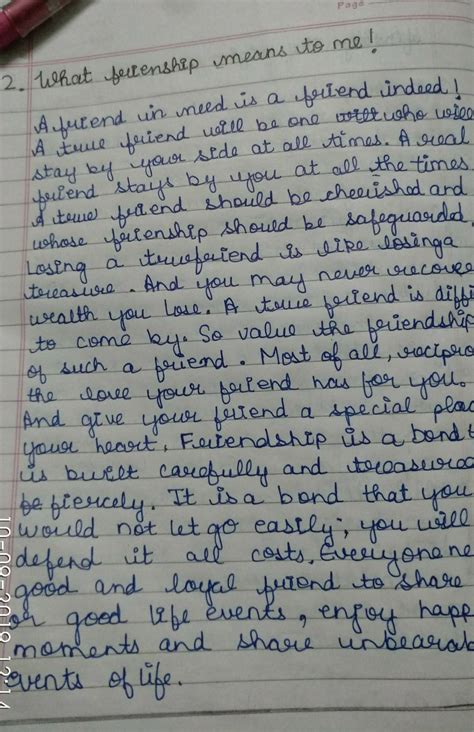 Page
2. What frienship means to me!
A friend in need is a friend indeed!
A true friend will be one who will
stay by your side at all times. A real
friend stays by you at all the times
A true friend should be cherished and
whose frienship should be safeguardd.
Losing a truefriend is like losinga
treasure. And you may never recove
wealth you lose. A true friend is diffi
to come by. So value the friendship
of such a friend. Most of all, recipro
the love your friend has for you.
And give your friend a special plac
your heart, Friendship is a bond t
is built carefully and treasured
be fiercely. It is a bond that you
would not let go easily; you will
defend it all costs. Everyone ne
good and loyal friend to share
or good life events, enjoy happ
moments and share unbearab
events of life.
10-09-2018 12:14